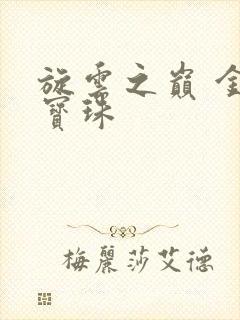 旋雲之巔 金
寶珠
梅麗莎艾德